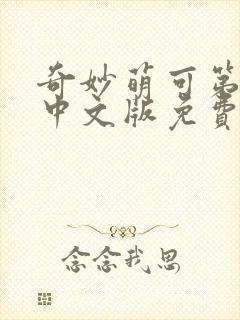 奇妙萌可第
中文版免费
念念我思